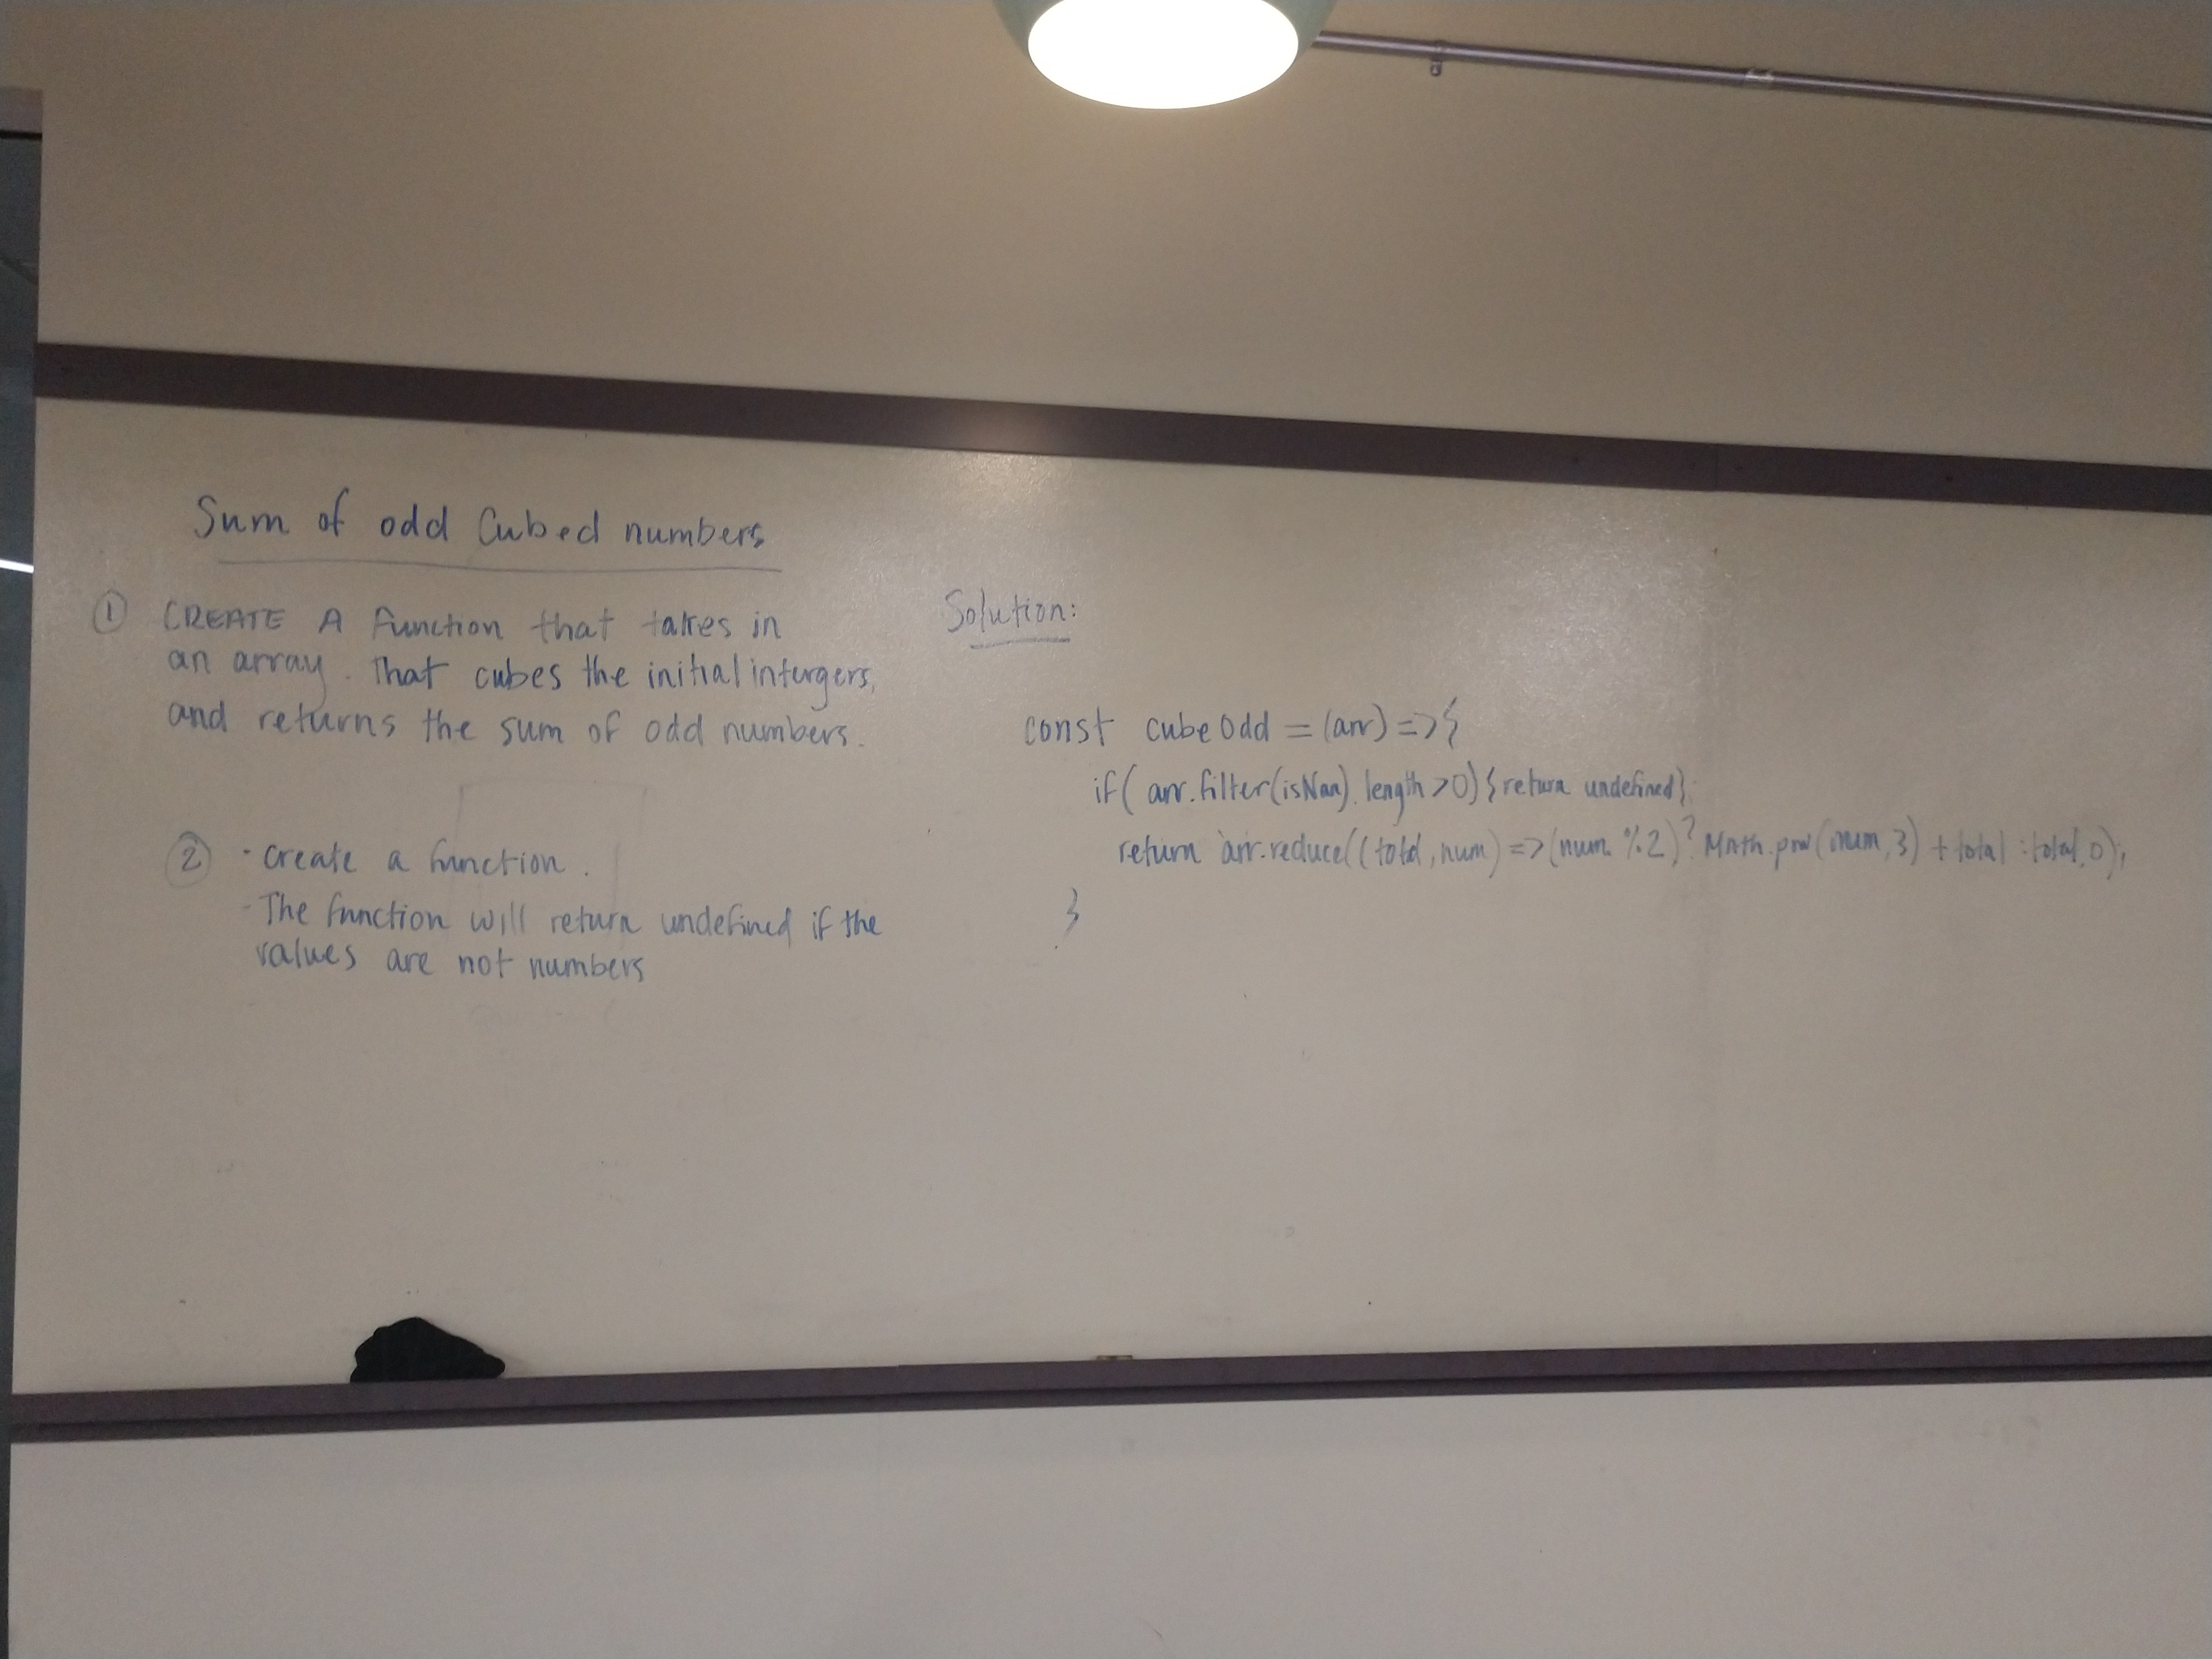 Sum of odd Cubed numbers
① CREATE A function that takes in
an array. That cubes the initial intergers,
and returns the sum of odd numbers.
② - Create a function.
- The function will return undefined if the
values are not numbers
Solution:
const cubeOdd = (arr) => {
if( arr.filter(isNan).length >0) { return undefined};
return arr.reduce((total, num) => (num. %2)? Math.pow(num,3) + total : total, 0);
}